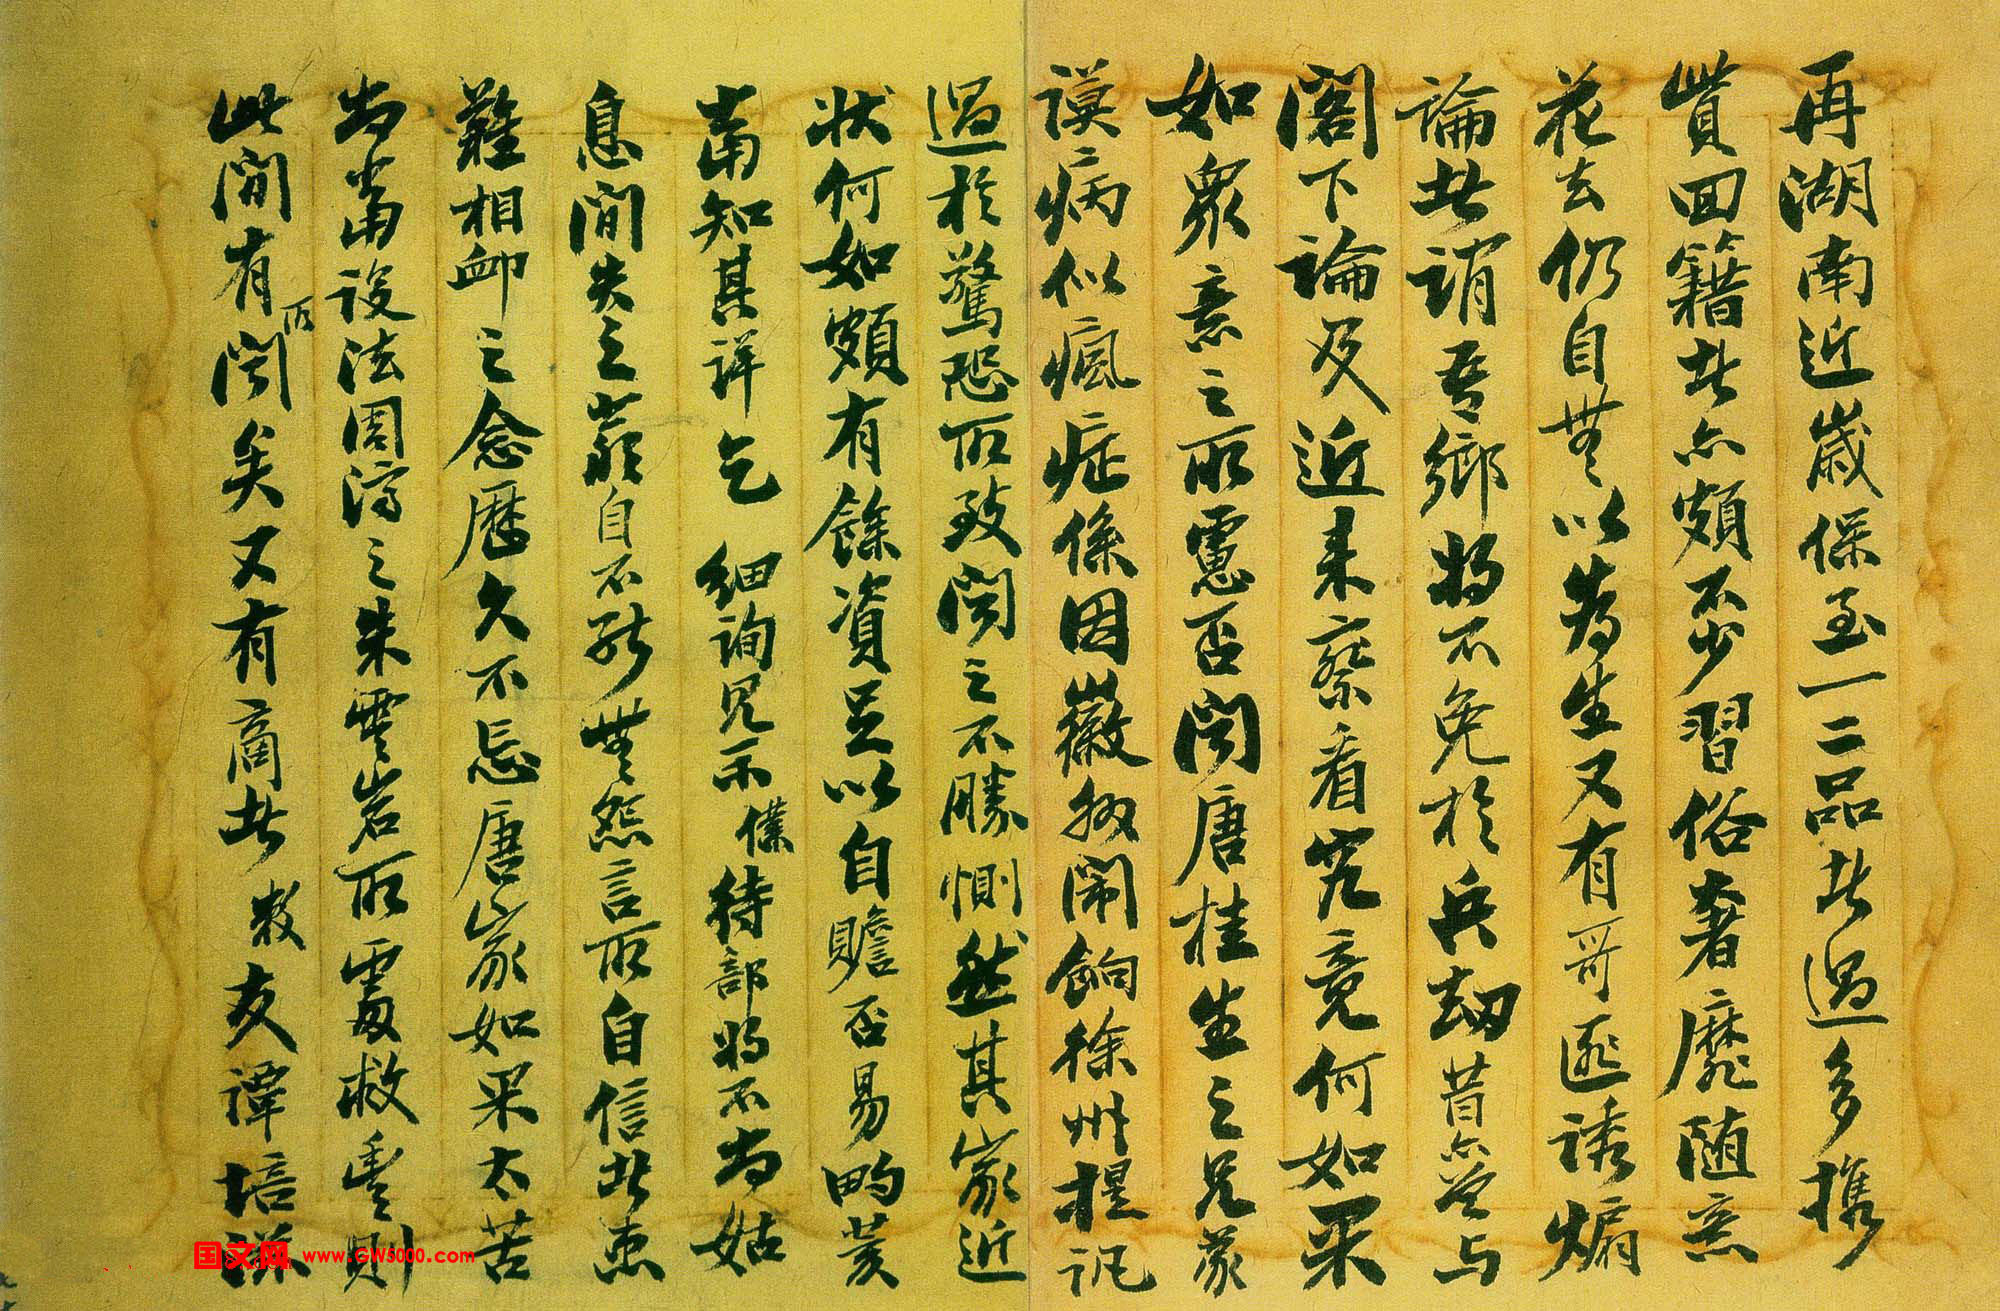 再湖南近歲保至一二品者過多攜
貲回籍者亦頗不少習俗奢靡隨意
花去仍自無以為生又有哥匪誘煽
論者謂吾鄉將不免於兵劫昔亦曾与
閣下論及近来察看究竟何如果
如衆意之所慮否閔唐桂生之兄蒙
謨病似瘋症係因徽投鬧餉徐州提訊
過於驚恐所致閔之不勝惻然其家近
狀何如頗有餘資足以自贍否易畇荄
當知其詳乞 細詢見示僕待部將不為姑
息間失之嚴自不能無怨言所自信者患
難相卹之念歷久不忘唐家如果太苦
尚當設法周濟之朱雲岩所處救豐則
此間有所閔矣又有商者敝友譚培滋
国文网 www.GW5000.com